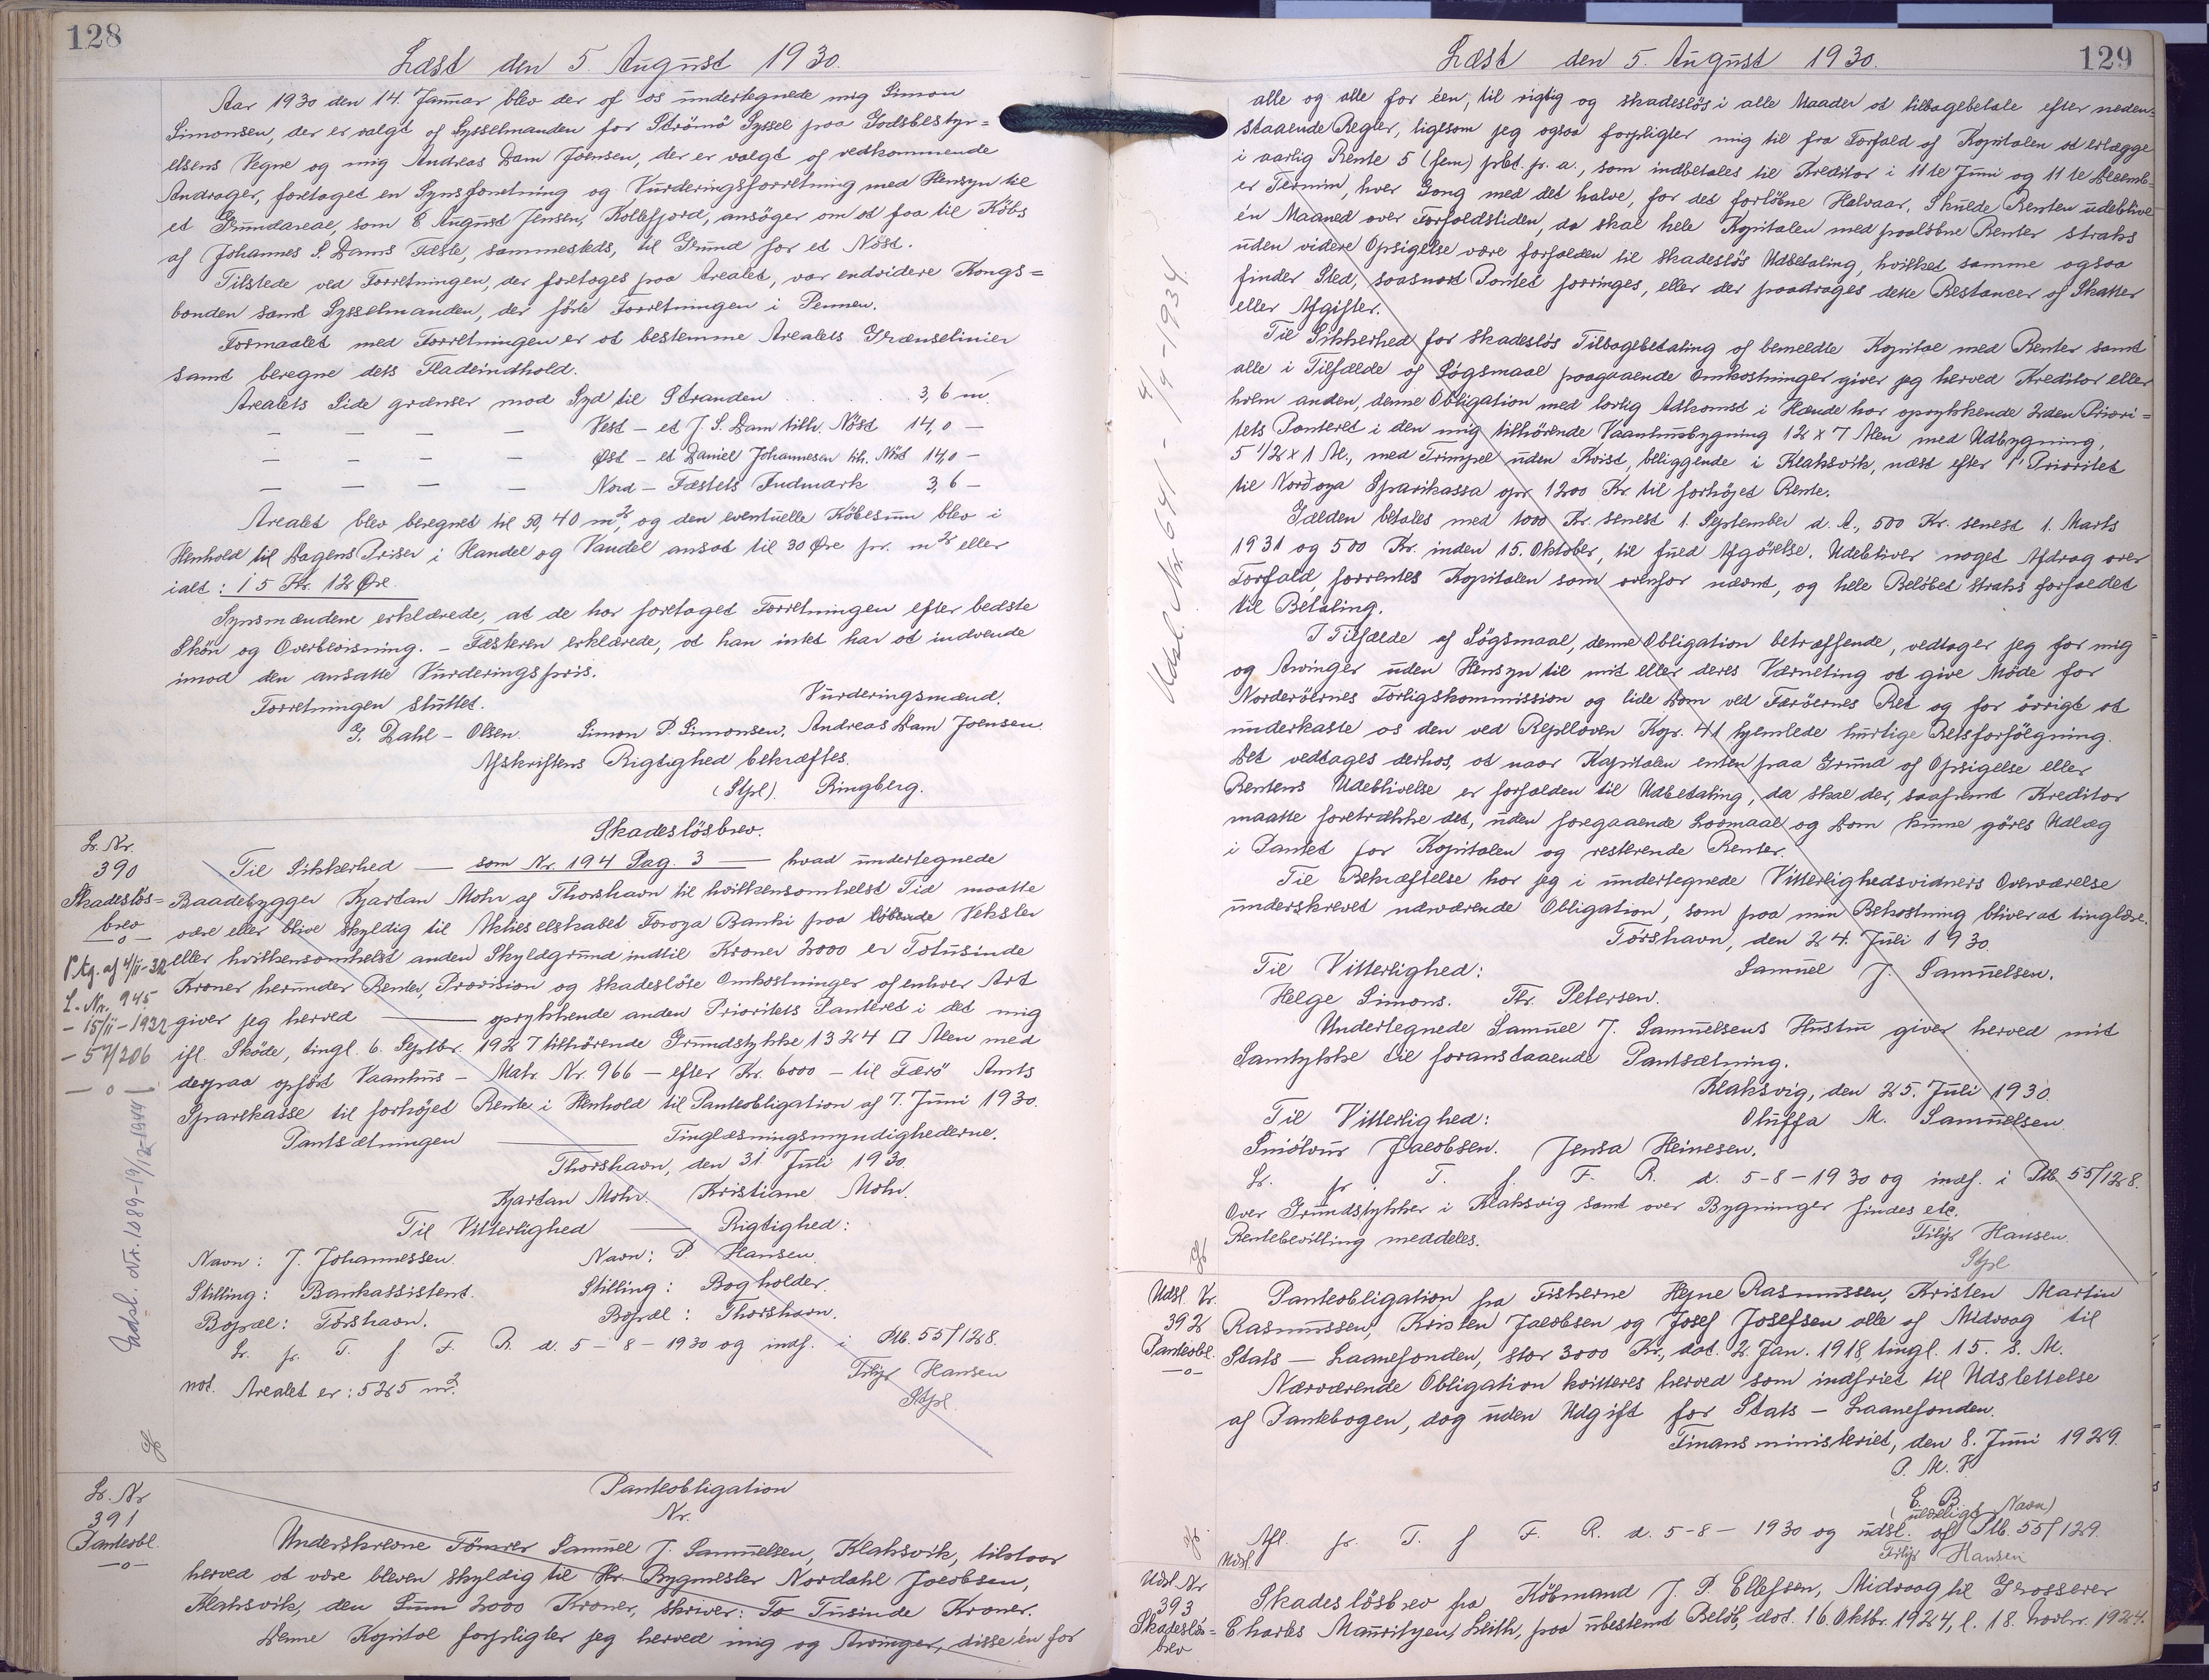 128
Læst den 5. August 1930.
Aar 1930 den 14. Januar blev der af os undertegnede mig Simon
Simonsen, der er valgt af Sysselmanden for Strömö Syssel paa Godsbestyr=
elsens Vegne og mig Andreas Dam Joensen, der er valgt af vedkommende
Andrager, foretaget en Synsforretning og Vurderingsforretning med Hensyn til
et Grundareal, som E August Jensen, Kollefjord, ansöger om at faa til Købs
af Johannes S. Dams Fæste, sammesteds, til Grund for et Nöst.
Tilstede ved Forretningen, der foretages paa Arealet, var endvidere Kongs=
bonden samt Sysselmanden, der förte Forretningen i Pennen.
Formaalet med Forretningen er at bestemme Arealets Grænselinier
samt beregne dets Fladeindhold.
Arealets Side grænser mod Syd til Stranden 3,6 m.
— — — — Vest – et J. S. Dam tilh. Nöst 14,0 —
— — — — Øst – et Daniel Johannesen tilh. Nöst 14,0 —
— — — — Nord – Fæstets Indmark 3,6 —
Arealet blev beregnet til 50,40 m², og den eventuelle Købesum blev i
Henhold til Dagens Priser i Handel og Vandel ansat til 30 Øre pr. m² eller
ialt: 15 Kr. 12 Øre.
Synsmændene erklærede, at de har foretaget Forretningen efter bedste
Skön og Overbevisning. – Fæsteren erklærede, at han intet har at indvende
imod den ansatte Vurderingspris.
Forretningen sluttet. Vurderingsmænd.
G. Dahl – Olsen. Simon P. Simonsen, Andreas Dam Joensen.
Afskriftens Rigtighed bekræftes.
(Stpl). Ringberg.
L. Nr.
390
Skadeslös=
brev
—o—
Ptg. af 4/11-32
L. Nr. 945
– 15/11 – 1932
– 57/206
— o —
Udsl. Nr. 1089-19/12-1944
Skadeslösbrev.
Til Sikkerhed — som Nr. 194 Pag. 3 — hvad undertegnede
Baadebygger Kjartan Mohr af Thorshavn til hvilkensomhelst Tid maatte
være eller blive skyldig til Aktieselskabet Foroya Banki paa löbende Veksler
eller hvilkensomhelst anden Skyldgrund indtil Kroner 2000 er Totusinde
Kroner herunder Renter, Provision og skadeslöse Omkostninger af enhver Art
giver jeg herved — oprykkende anden Prioritets Panteret i det mig
ifl. Sköde, tingl. 6. Septbr. 1927 tilhörende Grundstykke 1324 □ Alen med
derpaa opfört Vaanhus – Matr. Nr. 966 – efter Kr. 6000 – til Færö Amts
Sparekasse til forhöjet Rente i Henhold til Panteobligation af 7. Juni 1930.
Pantsætningen — Tinglæsningsmyndighederne.
Thorshavn, den 31 Juli 1930.
Kjartan Mohr. Kristiane Mohr.
Til Vitterlighed — Rigtighed:
Navn: J. Johannessen. Navn: P Hansen.
Stilling: Bankassistent. Stilling: Bogholder.
Bopæl: Torshavn. Bopæl: Thorshavn.
L. fr. T. f. F. R. d. 5 – 8 – 1930 og indf. i Ptb. 55/128.
Filip Hansen
not. Arealet er: 525 m². Stpl.
L. Nr
391
Panteobl.
—o—
Panteobligation
Nr.
Underskrevne Tömrer Samuel J. Samuelsen, Klaksvik, tilstaar
herved at være bleven skyldig til Hr. Bygmester Nordahl Jacobsen,
Klaksvik, den Sum 2000 Kroner, skriver: To Tusinde Kroner.
Denne Kapital forpligter jeg herved mig og Arvinger, disse én for
129
Læst den 5. August 1930.
alle og alle for éen, til rigtig og skadeslös i alle Maader at tilbagebetale efter neden=
staaende Regler, ligesom jeg ogsaa forpligter mig til fra Forfald af Kapitalen at erlægge
i aarlig Rente 5 (fem) prct. pr. a., som indbetales til Kreditor i 11te Juni og 11te Decemb=
er Termin, hver Gang med det halve, for det forlöbne Halvaar. Skulde Renten udeblive
én Maaned over Forfaldstiden, da skal hele Kapitalen med paalöbne Renter straks
uden videre Opsigelse være forfalden til skadeslös Udbetaling, hvilket samme ogsaa
finder Sted, saasnart Pantet forringes, eller der paadrages dette Restancer af Skatter
eller Afgifter.
Til Sikkerhed for skadeslös Tilbagebetaling af bemeldte Kapital med Renter samt
alle i Tilfælde af Sögsmaal paagaaende Omkostninger giver jeg herved Kreditor eller
hvem anden, denne Obligation med lovlig Adkomst i Hænde har oprykkende 2den Priori=
tets Panteret i den mig tilhörende Vaanhusbygning 12 x 7 Alen med Udbygning,
5 1/2 x 1 Al., med Trimpel uden Kvist, beliggende i Klaksvik, næst efter 1' Prioritet
til Norðoya Sparikassa opr. 1200 Kr. til forhöjet Rente.
Gælden betales med 1000 Kr. senest 1. September d. A., 500 Kr. senest 1. Marts
1931 og 500 Kr. inden 15. Oktober, til fuld Afgörelse. Udebliver noget Afdrag over
Forfald, forrentes Kapitalen som ovenfor nævnt, og hele Beløbet straks forfaldet
til Betaling.
I Tilfælde af Sögsmaal, denne Obligation betræffende, vedtager jeg for mig
og Arvinger uden Hensyn til mit eller deres Værneting at give Möde for
Norderöernes Forligskommission og lide Dom ved Færöernes Ret og for övrigt at
underkaste os den ved Replloven Kap. 41 hjemlede hurtige Retsforfölgning.
Det vedtages derhos, at naar Kapitalen enten paa Grund af Opsigelse eller
Rentens Udeblivelse er forfalden til Udbetaling, da skal der, saafremt Kreditor
maatte foretrække det, uden foregaaende Lovmaal og Dom kunne göres Udlæg
i Pantet for Kapitalen og resterende Renter.
Til Bekræftelse har jeg i undertegnede Vitterlighedsvidners Overværelse
underskrevet nærværende Obligation, som paa min Bekostning bliver at tinglæse.
Törshavn, den 24. Juli 1930.
Til Vitterlighed: Samuel J. Samuelsen.
Helge Simons. Thr. Petersen.
Undertegnede Samuel J. Samuelsens Hustru giver herved mit
Samtykke til foranstaaende Pantsætning.
Klaksvig, den 25. Juli 1930.
Til Vitterlighed: Oluffa M. Samuelsen.
Sniólvur Jacobsen. Jensa Heinesen.
L. fr. T. f. F. R. d. 5-8-1930 og indf. i Ptb. 55/128.
Over Grundstykker i Klaksvig samt over Bygninger findes etc.
Rentebevilling meddeles. Filip Hansen.
Stpl
Udsl. Nr. 641 – 4/9 – 1934
Udsl. Nr.
392
Panteobl.
—o—
Panteobligation fra Fiskerne Hejne Rasmussen, Kristen Martin
Rasmussen, Kristen Jacobsen og Josef Josefsen alle af Midvaag til
Stats – Laanefonden, stor 3000 Kr., dat. 2. Jan. 1918, tingl. 15. s. M.
Nærværende Obligation kvitteres herved som indfriet til Udslettelse
af Pantebogen, dog uden Udgift for Stats – Laanefonden.
Finansministeriet, den 8. Juni 1929.
P. M. V
E. B.
(ulæseligt Navn)
Afl. fr. T. f F. R. d. 5-8-1930 og udsl. af Ptb. 55/129.
Udsl. Filip Hansen
Udsl. Nr
393
Skadeslös=
brev
Skadeslösbrev fra Köbmand J. P. Ellefsen, Midvaag til Grosserer
Charles Mauritzen, Leith, paa ubestemt Beløb, dat. 16. Oktbr. 1924, l. 18. Novbr. 1924.